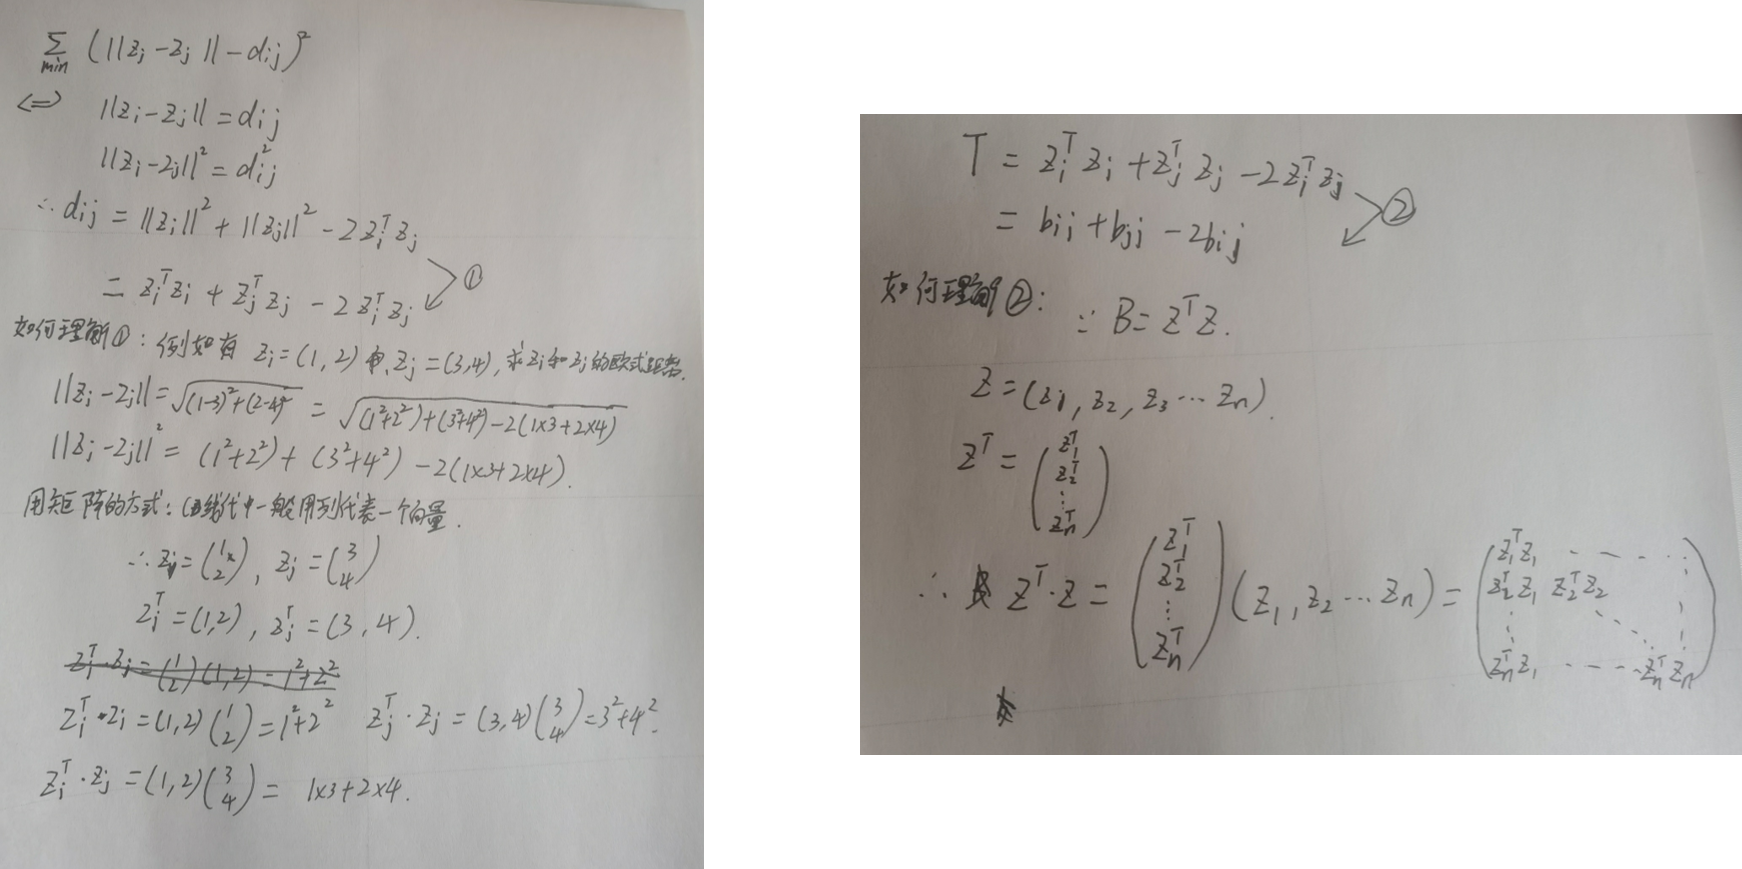 ∑min (||zi - zj|| - dij)²
<=> ||zi - zj|| = dij
||zi - zj||² = dij²
∴ dij = ||zi||² + ||zj||² - 2ziᵀzj
= ziᵀzi + zjᵀzj - 2ziᵀzj ①
如何理解①: 例如有 zi = (1, 2) zj = (3, 4), 求zi和zj的欧式距离.
||zi - zj|| = √((1-3)² + (2-4)²) = √((1²+2²) + (3²+4²) - 2(1×3+2×4))
||zi - zj||² = (1²+2²) + (3²+4²) - 2(1×3+2×4).
用矩阵的方式: 线代中一般用列代表一个向量.
∴ zi = (1 2), zj = (3 4)
ziᵀ = (1, 2), zjᵀ = (3, 4).
ziᵀ·zi = (1 2)(1, 2) = 1²+2²
ziᵀ·zi = (1, 2)(1 2) = 1²+2² zjᵀ·zj = (3, 4)(3 4) = 3²+4².
ziᵀ·zj = (1, 2)(3 4) = 1×3+2×4.
T = ziᵀzi + zjᵀzj - 2ziᵀzj
= bii + bjj - 2bij ②
如何理解②: ∵ B = ZᵀZ.
Z = (z1, z2, z3 ⋯ zn).
Zᵀ = (z1ᵀ z2ᵀ ⋮ znᵀ)
∴ Zᵀ·Z = (z1ᵀ z2ᵀ ⋮ znᵀ) (z1, z2 ⋯ zn) = (z1ᵀz1 ⋯ z2ᵀz1 z2ᵀz2 ⋮ znᵀz1 ⋯ znᵀzn)